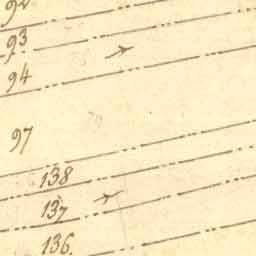 92
93
94
97
138
137
136.